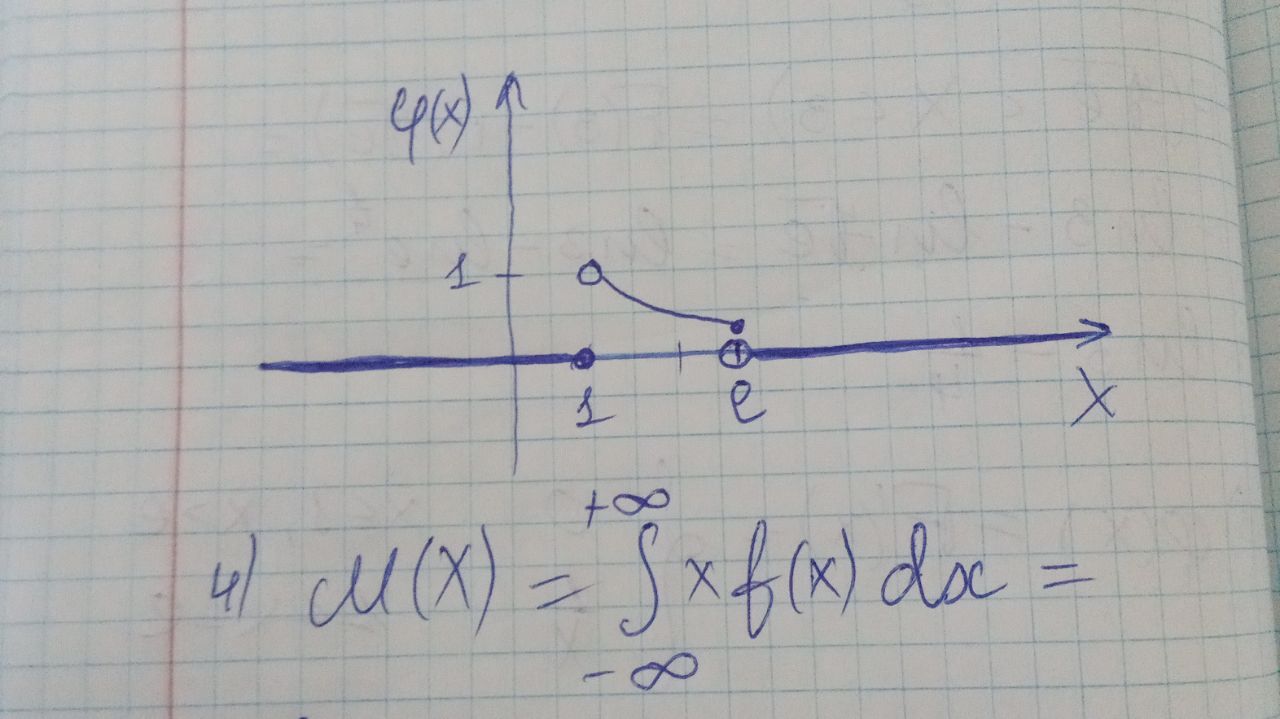 φ(x)
1
1 e
X
4) M(X) = ∫ x f(x) dx =
+∞
-∞